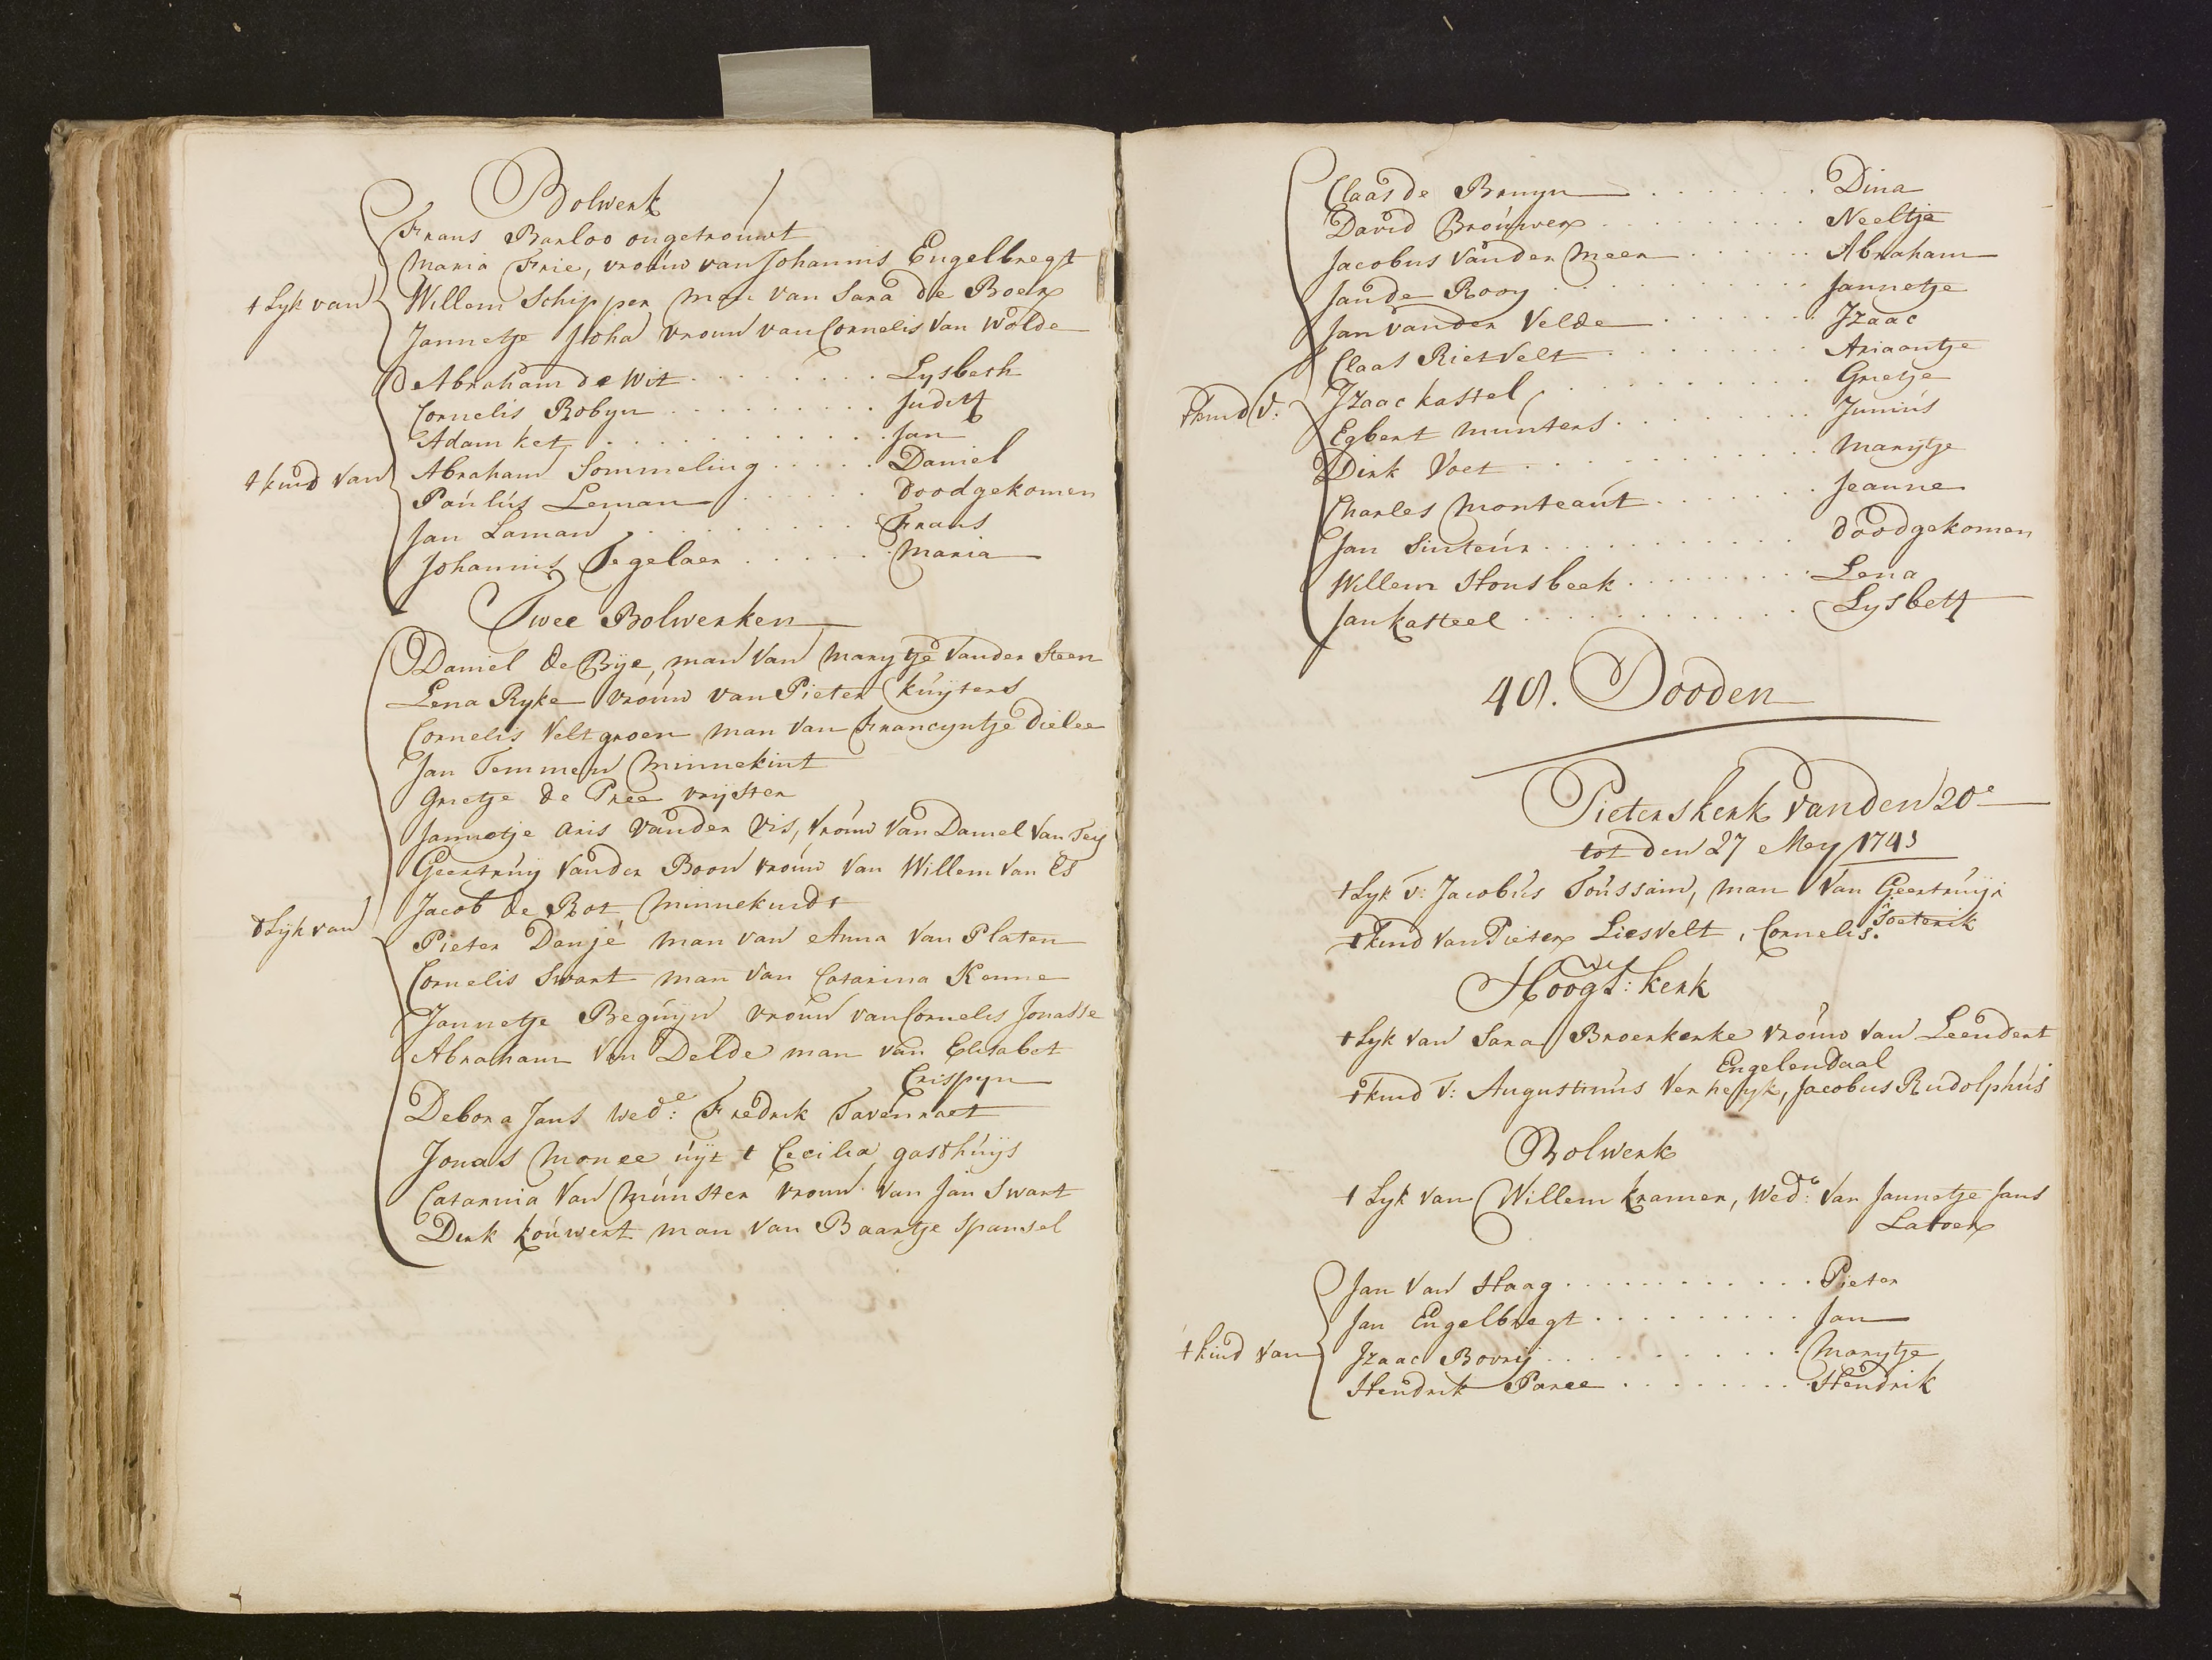 Bolwerk
Frans Barloo ongetrouwt
Maria Frie, vrouw van Johannis Engelbregt
t Lyk van Willem Schipper man van Sara de Boer
Jannetje Joha vrouw van Cornelis van Wolde
Abraham de Wit . . . . . . . . Lysbeth
Cornelis Robyn . . . . . . . . . Judith
Adam Ket . . . . . . . . . . . . Jan
t kind van Abraham Sommeling . . . . . Daniel
Paulus Leman . . . . . . doodgekomen
Jan Laman . . . . . . . . . Frans
Johannis Tegelaer . . . . . . Maria
Twee Bolwerken
Daniel de Bije, man van Marytje vander Steen
Lena Ryke vrouw van Pieter Kuyters
Cornelis Veltgroen man van Francyntje Dielee
Jan Temmen Minnekint
Grietje de Pree vryster
Jannetje Aris vander Vis, vrouw van Daniel van Tey
Geertruy vander Boon vrouw van Willem van Es
Jacob de Bot Minnekindt
t Lijk van
Pieter Danjé man van Anna van Platen
Cornelis Swart man van Catarina Kenne
Jannetje Beguyn vrouw van Cornelis Jonasse
Abraham van Delde man van Elisabet
Crispyn
Debora Jans Wede: Fredrik Tavenraet
Jonas Monee uyt t Cecilia gasthuys
Catarina van Munster vrouw van Jan Swart
Dirk Kouwert man van Baartje Spansel
Claas de Bruyn . . . . . . . Dina
David Brouwer . . . . . . . . Neeltje
Jacobus vander Meer . . . . . . Abraham
Jan de Rooy . . . . . . . . . . Jannetje
Jan vander Velde . . . . . . . Izaac
Claas Rietvelt . . . . . . . . Ariaantje
t kind v: Izaac Kastel . . . . . . . . . . Grietje
Egbert Munters . . . . . . . . Junius
Dirk Voet . . . . . . . . . . . Marytje
Charles Monteaut . . . . . . . Jeanne
Jan Sinteur . . . . . . . . . . doodgekomen
Willem Honsbeek . . . . . . . . Lena
Jan Kasteel . . . . . . . . . . . Lysbeth
48. Dooden
Pieterskerk vanden 20e
tot den 27 Mey 1743
t Lyk v: Jacobus Toussain, man van Geertruyt
Soeterik
t kind van Pieter Liesvelt, Cornelis.
Hoogl: kerk
t Lyk van Sara Broerkerke vrouw van Leendert
Engelendaal
t kind v: Augustinus Verheyk, Jacobus Rudolphus
Bolwerk
t Lyk van Willem Kramer, Wede: van Jannetje Jans
Latoer
Jan van Haag . . . . . . . . . . . Pieter
Jan Engelbregt . . . . . . . . . Jan
t kind van Izaac Bovrij . . . . . . . . . . Marytje
Hendrik Paree . . . . . . . . Hendrik